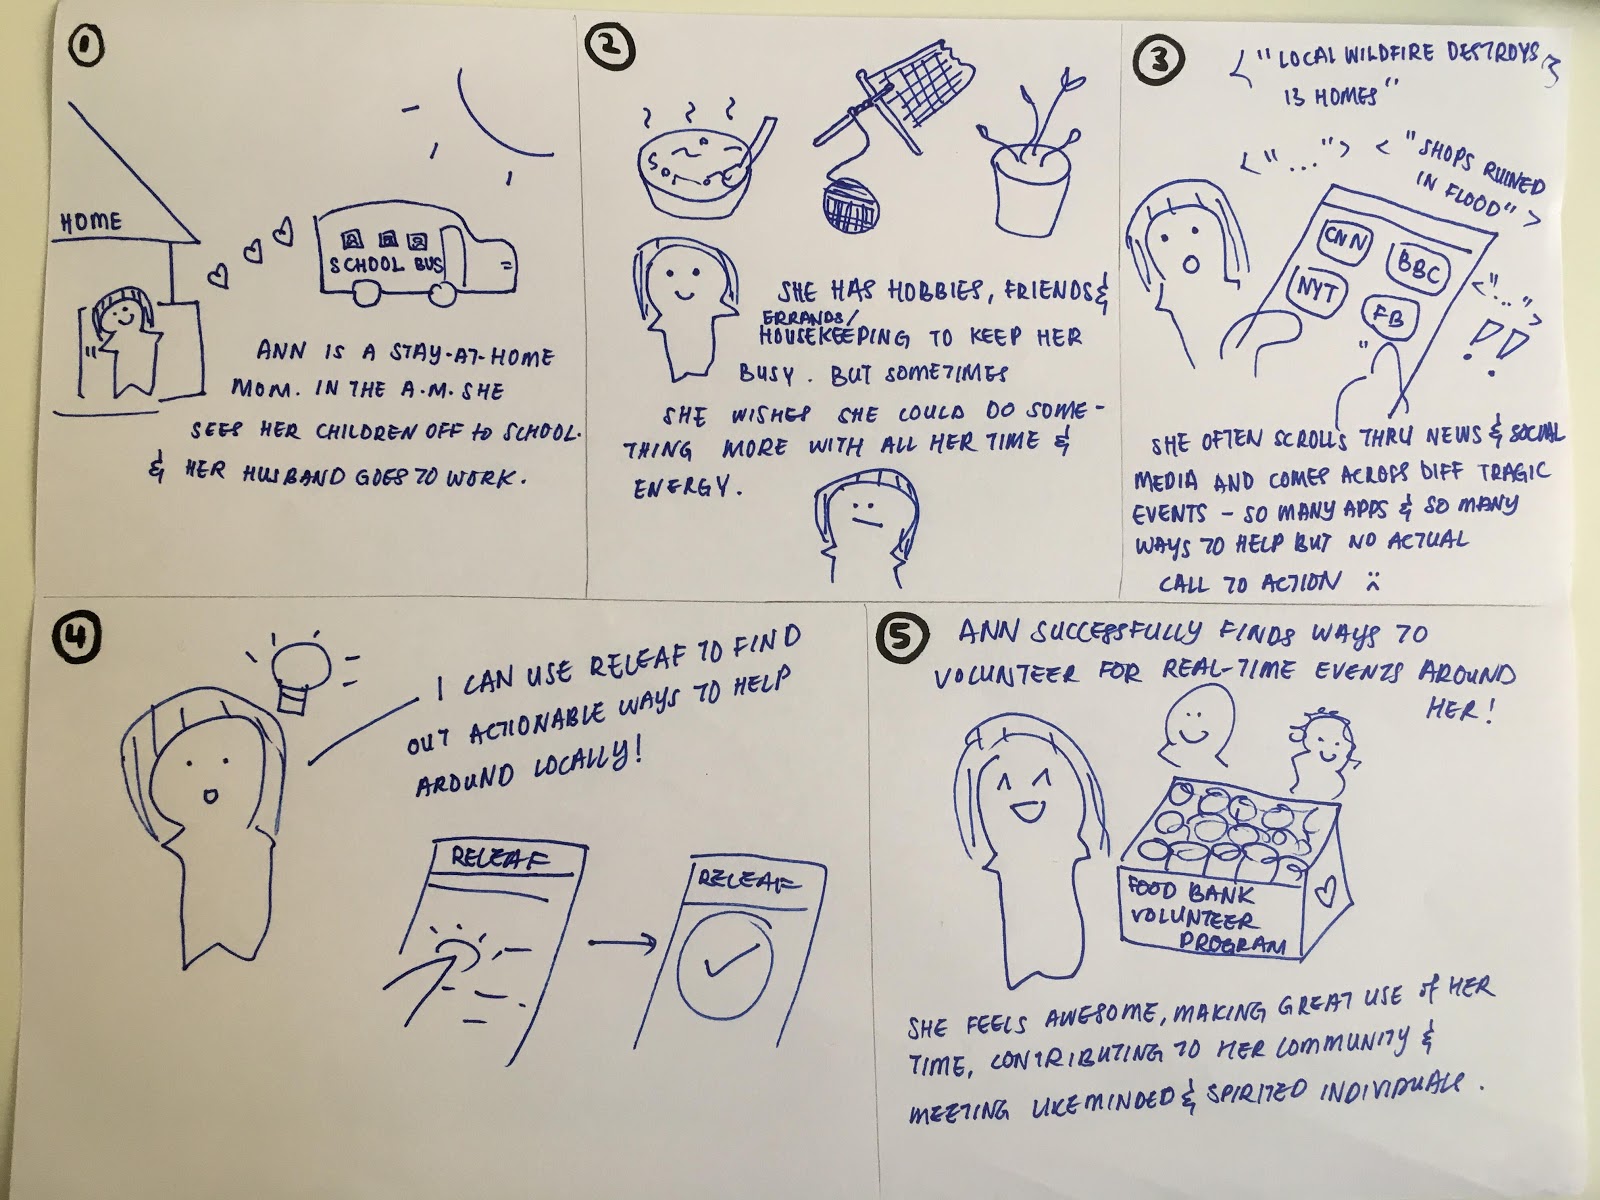 1
HOME
SCHOOL BUS
ANN IS A STAY-AT-HOME
MOM. IN THE A.M. SHE
SEES HER CHILDREN OFF to SCHOOL.
& HER HUSBAND GOES TO WORK.
2
SHE HAS HOBBIES, FRIENDS &
ERRANDS/
HOUSEKEEPING TO KEEP HER
BUSY. BUT SOMETIMES
SHE WISHES SHE COULD DO SOME-
THING MORE WITH ALL HER TIME &
ENERGY.
3
<"LOCAL WILDFIRE DESTROYS
13 HOMES">
<"...">
<"SHOPS RUINED
IN FLOOD">
CNN
BBC
NYT
FB
<"...">
!!
SHE OFTEN SCROLLS THRU NEWS & SOCIAL
MEDIA AND COMES ACROSS DIFF TRAGIC
EVENTS – SO MANY APPS & SO MANY
WAYS TO HELP BUT NO ACTUAL
CALL TO ACTION :(
4
I CAN USE RELEAF TO FIND
OUT ACTIONABLE WAYS TO HELP
AROUND LOCALLY!
RELEAF
RELEAF
5
ANN SUCCESSFULLY FINDS WAYS TO
VOLUNTEER FOR REAL-TIME EVENTS AROUND
HER!
FOOD BANK
VOLUNTEER
PROGRAM
SHE FEELS AWESOME, MAKING GREAT USE of HER
TIME, CONTRIBUTING TO HER COMMUNITY &
MEETING LIKEMINDED & SPIRITED INDIVIDUALS.